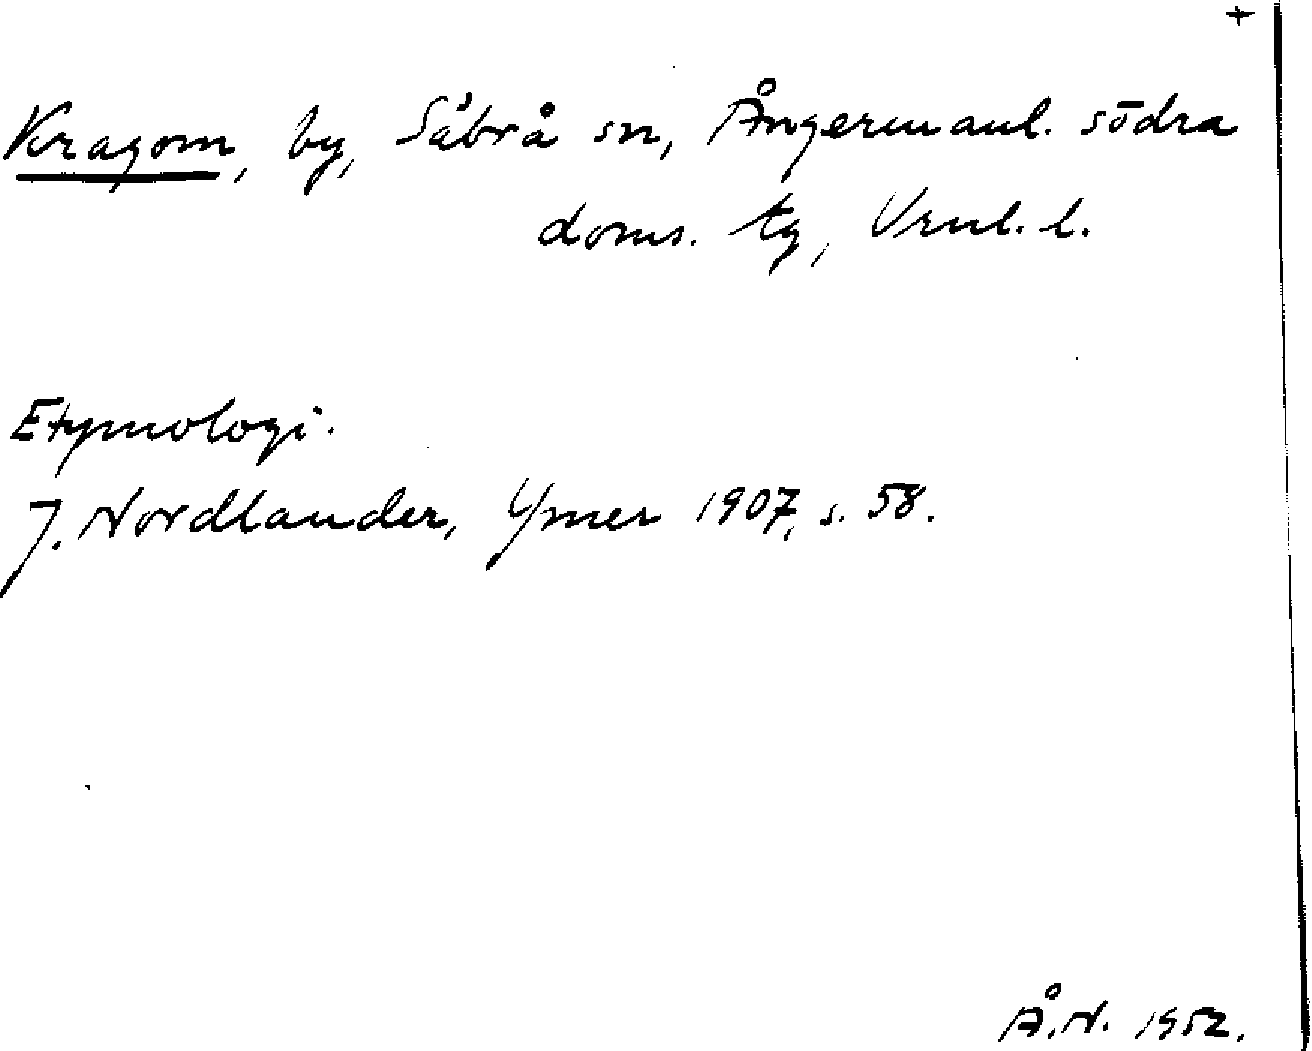 +
Kragom, by, Säbrå sn, Ångermanl. södra
doms. tg, Vrnl. l.
Etymologi.
J. Nordlander, Ymer 1907, s. 58.
Å.N. 1952.